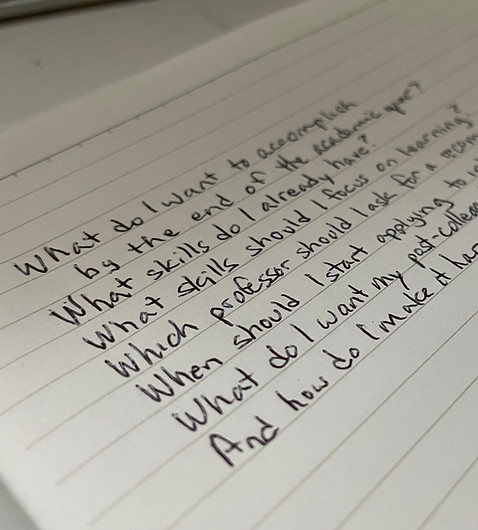 What do I want to accomplish
by the end of the academic year?
What skills do I already have?
What skills should I focus on learning?
Which professor should I ask for a
When should I start applying to
What do I want my post-college
And how do I make it